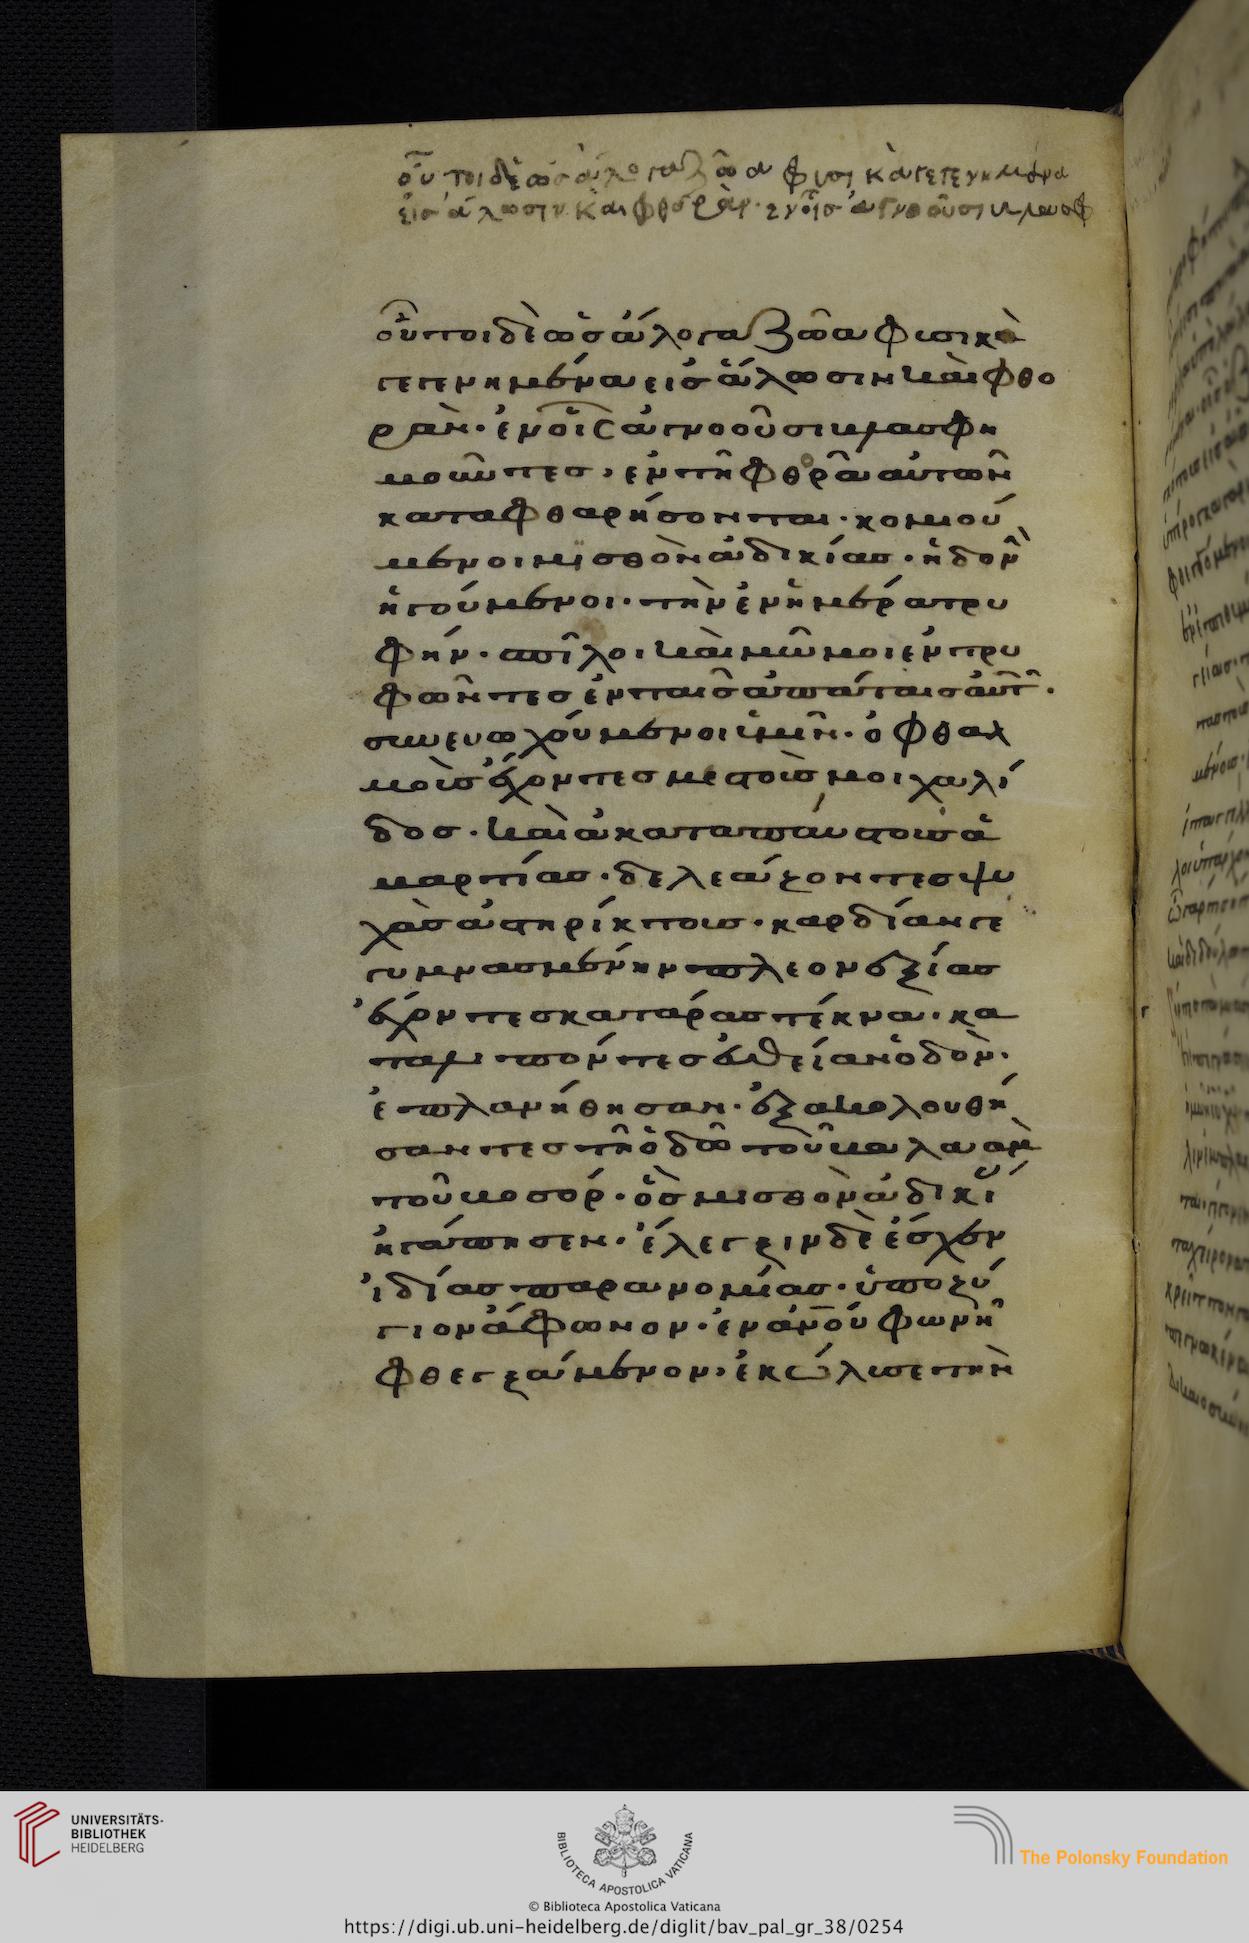 οὗτοι δὲ ὡς ἄλογα ζῶα φυσικὰ γεγενημένα
εἰς ἅλωσιν καὶ φθορὰν· ἐν οἷς ἀγνοοῦσι βλασφ
οὗτοι δὲ ὡς ἄλογα ζῶα φυσικὰ
γεγενημένα εἰς ἅλωσιν καὶ φθο
ρὰν· ἐν οἷς ἀγνοοῦσι βλασφη
μοῦντες, ἐν τῆ φθορᾶ αὐτῶν
καταφθαρήσονται· κομιού
μενοι μισθὸν ἀδικίας· ἡδονὴ
ἡγούμενοι· τὴν ἐν ἡμέρα τρυ
φήν· σπῖλοι καὶ μῶμοι ἐντρυ
φῶντες ἐν ταῖς ἀπάταις αὐτ·
συνευωχούμενοι ὑμῖν· ὀφθαλ
μοὺς ἔχοντες μεστοὺς μοιχαλί
δος· καὶ ἀκαταπάυστους ἁ
μαρτίας· δελεάζοντες ψυ
χὰς ἀστηρίκτους· καρδίαν γε
γυμνασμένην πλεονεξίας
ἔχοντες κατάρας τέκνα· κα
ταλιπόντες εὐθεῖαν ὁδὸν·
ἐπλανήθησαν· ἐξακολουθή
σαντες τῆ ὁδῶ τοῦ βαλαὰμ
τοῦ βοσόρ· ὃς μισθὸν ἀδικί
ἠγάπησεν· ἔλεγξιν δὲ ἔσχεν
ἰδίας παρανομίας· ὑποζύ
γιον ἄφωνον· ἐν ἀνου φωνῆ
φθεγξάμενον, ἐκώλυσε τὴν
UNIVERSITÄTS-
BIBLIOTHEK
HEIDELBERG
BIBLIOTECA APOSTOLICA VATICANA
The Polonsky Foundation
© Biblioteca Apostolica Vaticana
https://digi.ub.uni-heidelberg.de/diglit/bav_pal_gr_38/0254